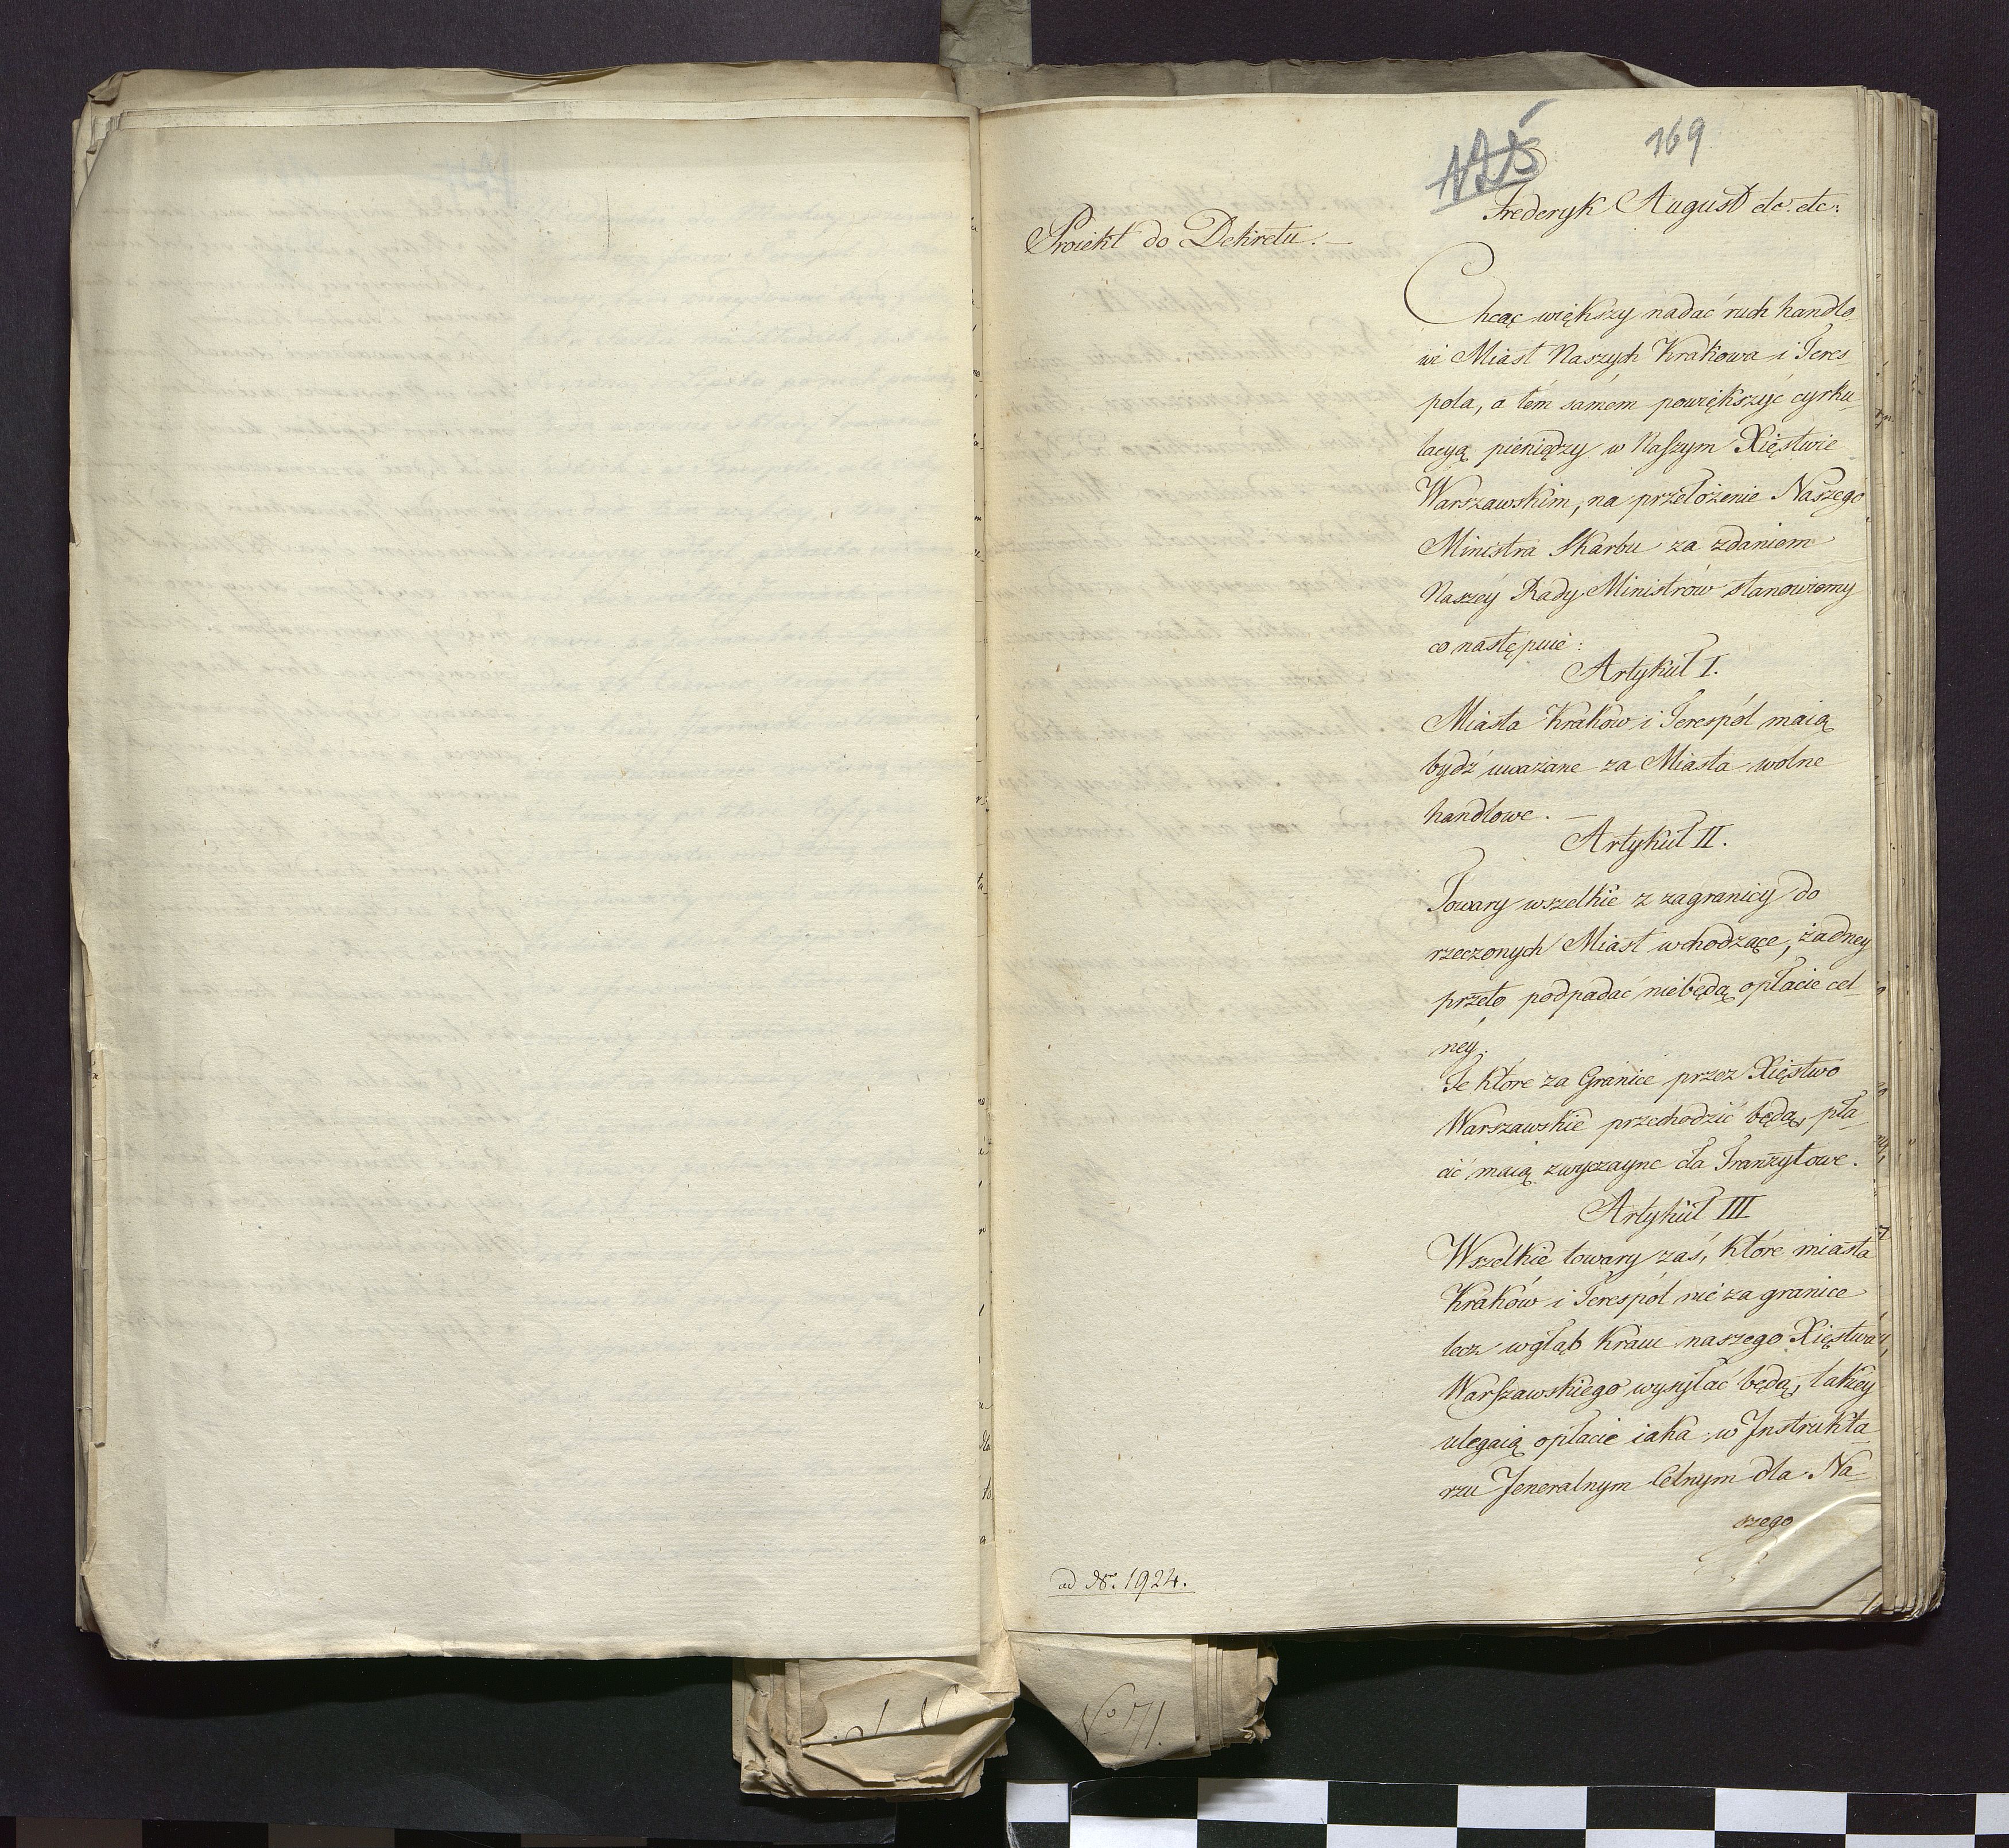 169
Frederyk August etc. etc:
Proiekt do Dekretu. —
Chcąc większy nadać ruch handlo-
wi Miast Naszych Krakowa i Teres-
pola, a tém samém powiększyć cyrku-
lacyą pieniędzy w Naszym Xięstwie
Warszawskim, na przełożenie Naszego
Ministra Skarbu za zdaniem
Naszéy Rady Ministrów stanowiemy
co następuie:
Artykuł I.
Miasta Kraków i Terespól maią
bydź uważane za Miasta wolne
handlowe. —
Artykuł II.
Towary wszelkie z zagranicy do
rzeczonych Miast wchodzące, żadney
przeto podpadać niebędą opłacie cel-
néy.
Te które za Granice przez Xięstwo
Warszawskie przechodzić będą, pła-
cić maią zwyczayne cła Tranzytowe.
Artykuł III
Wszelkie towary zaś, które miasta
Kraków i Terespól nie za granice
lecz wgłąb Kraiu naszego Xięstwa
Warszawskiego wysyłać będą, takiey
ulegaią opłacie iaka w Instrukta-
rzu Jeneralnym Celnym dla Na-
szego
ad Nr. 1924.
No 71.